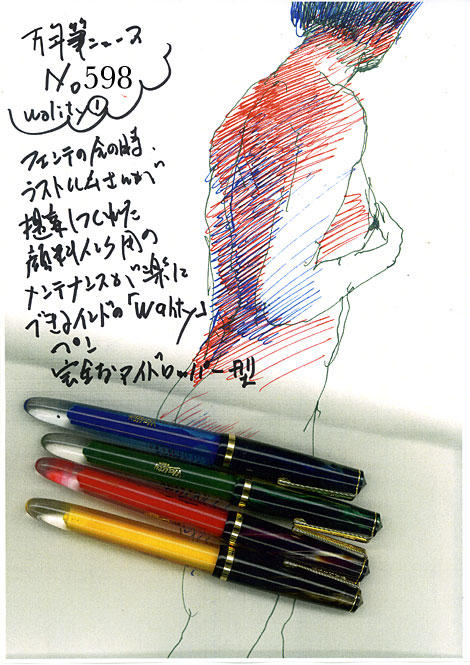 万年筆ニュース
No598
Wality①
フェンテの会の時、
ラストルムさんが
提案してくれた
顔料インク用の
メンテナンスが楽に
できるインドの「Wality」
ペン
完全なアイドロッパー型
WALITY
WALITY